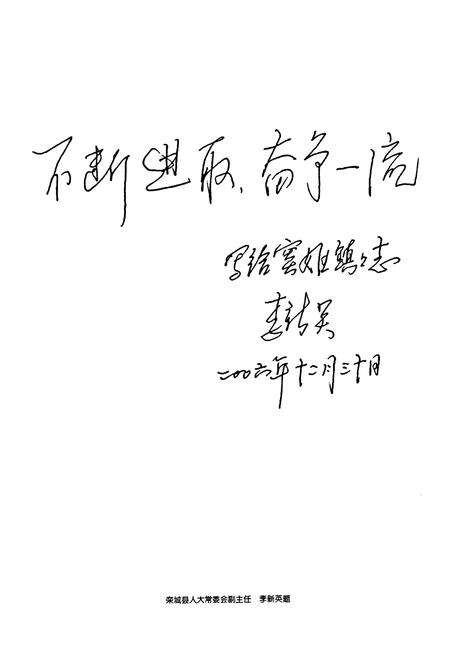 不断进取、奋争一流
写给窦妪镇镇志
李新英
二〇〇六年十二月三十日
栾城县人大常委会副主任 李新英题